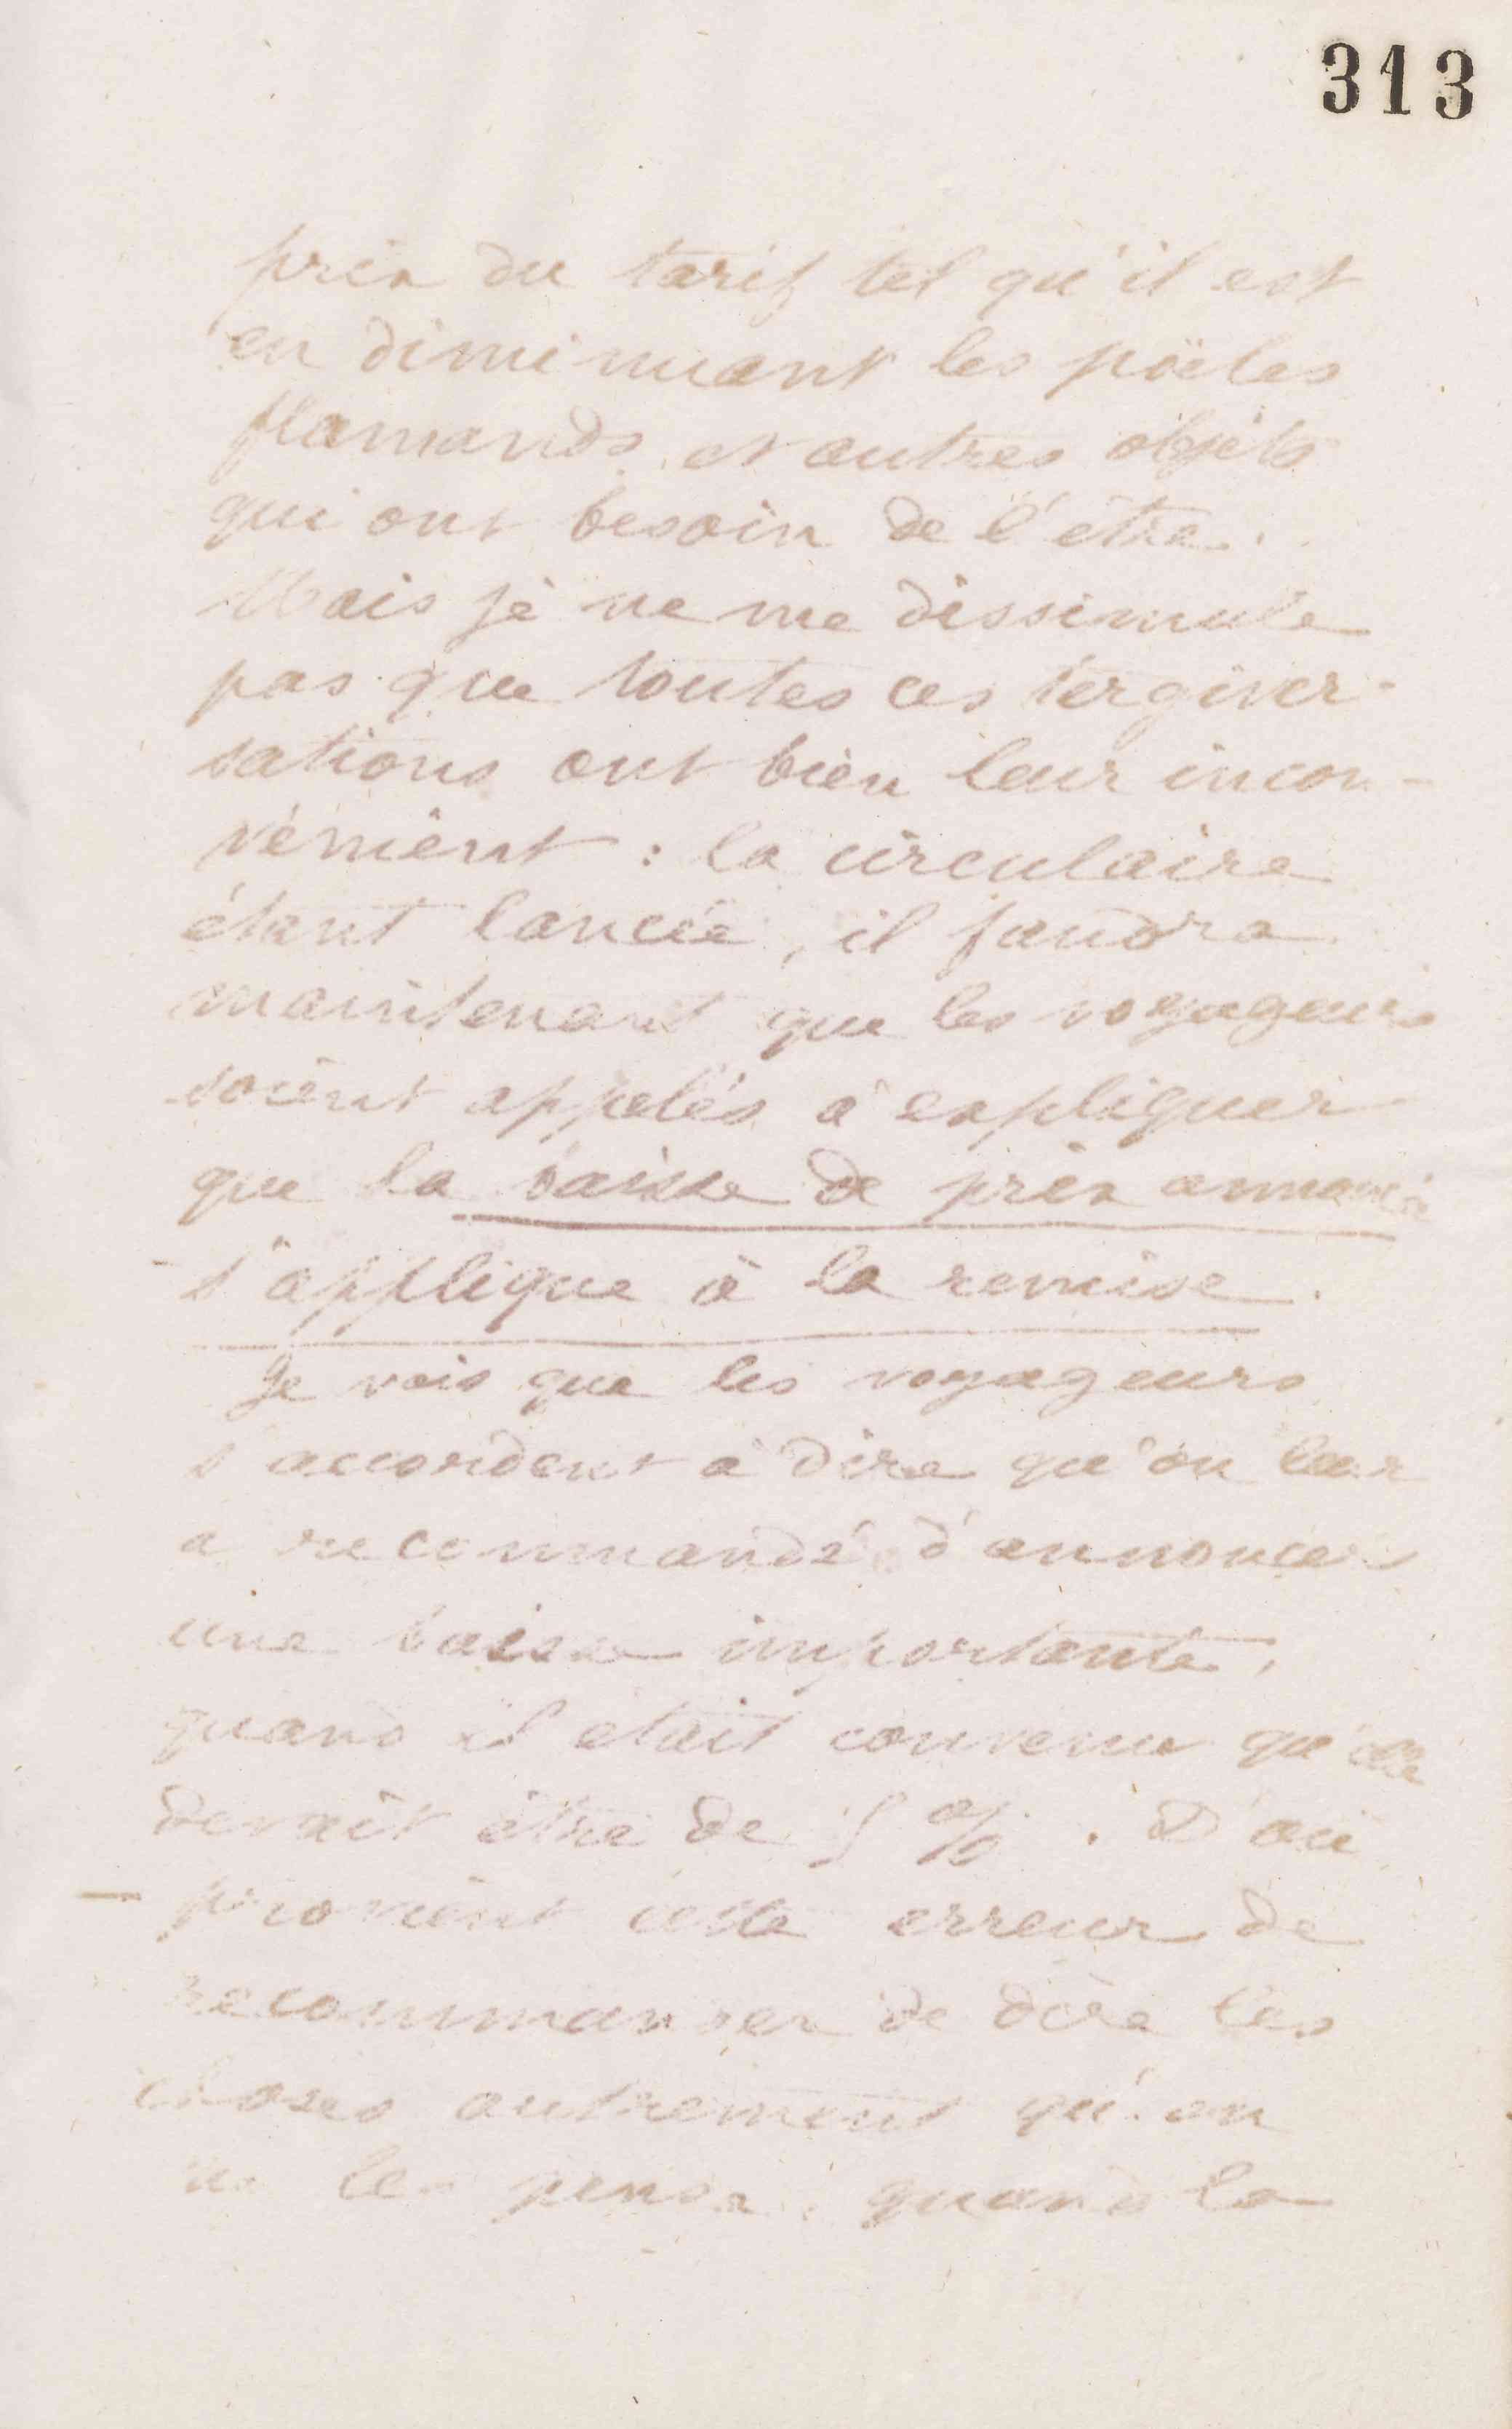 313
prix du tarif tel qu'il est
en diminuant les poëles
flamands et autres objets
qui ont besoin de l'être.
Mais je ne me dissimule
pas que toutes ces tergiver-
sations ont bien leur incon-
vénient : la circulaire
étant lancée, il faudra
maintenant que les voyageurs
soient appelés à expliquer
que la baisse de prix annoncée
s'applique à la remise.
Je vois que les voyageurs
s'accordent à dire qu'on leur
a recommandé d'annoncer
une baisse importante,
quand il était convenu qu'elle
devait être de 5 %. D'où
provient cette erreur de
recommander de dire les
choses autrement qu'on
ne les pense, quand la